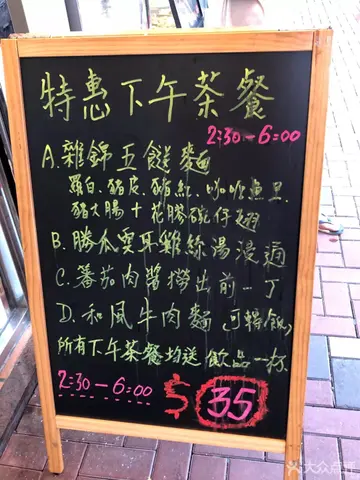 特惠下午茶餐
2:30-6:00
A.雜錦五餸麵
羅白.豬皮.豬紅.咖喱魚旦
豬大腸+花膠碗仔翅
B.勝瓜雲耳雞絲湯浸通
C.蕃茄肉醬撈出前一丁
D.和風牛肉麵(可轉飯)
所有下午茶餐均送飲品一杯
2:30-6:00
$35
大众点评